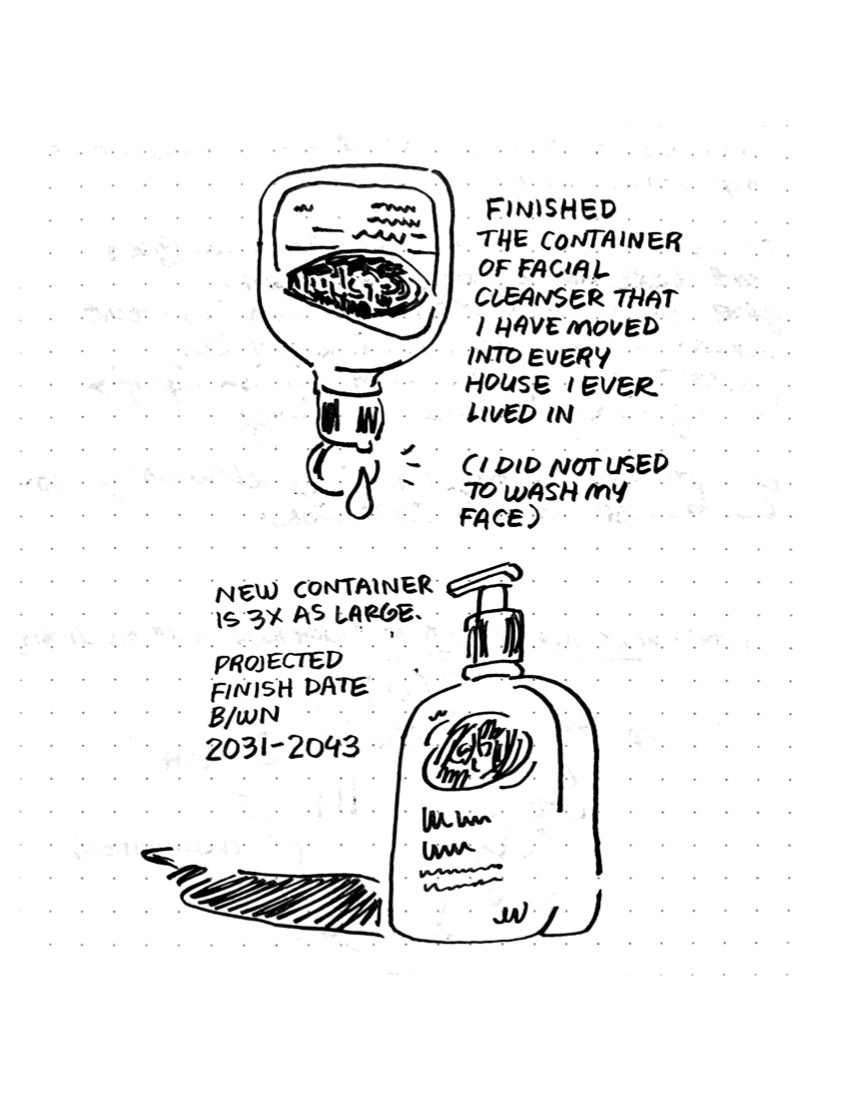 FINISHED
THE CONTAINER
OF FACIAL
CLEANSER THAT
I HAVE MOVED
INTO EVERY
HOUSE I EVER
LIVED IN
(I DID NOT USED
TO WASH MY
FACE)
NEW CONTAINER
IS 3X AS LARGE.
PROJECTED
FINISH DATE
B/WN
2031-2043